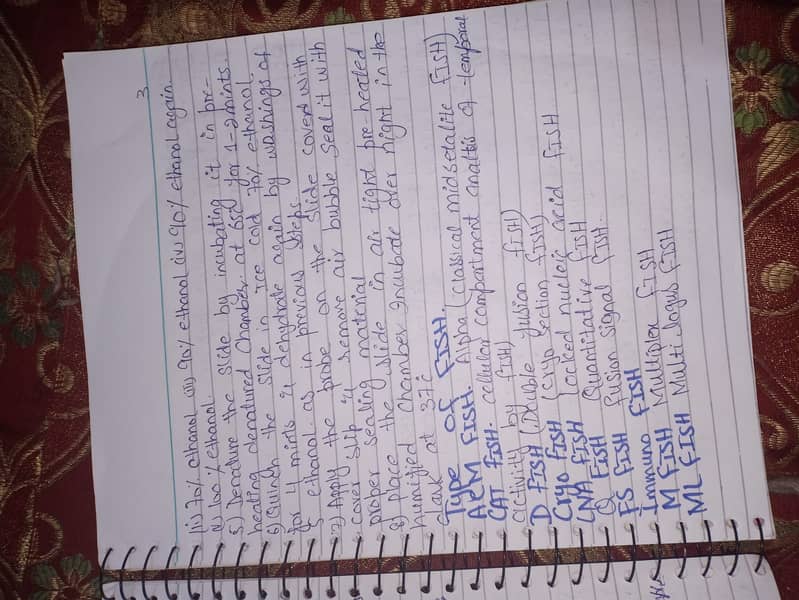 3
(ii) 70% ethanol (iii) 90% ethanol (iv) 90% ethanol again.
v) 100% ethanol.
5) Denature the slide by incubating it in pre-
heating denatured chamber at 65c for 1-2 mints.
6) Quinch the slide in ice cold 70% ethanol
for 4 mints & dehydrate again by washings of
ethanol as in previous steps.
7) Apply the probe on the slide coverd with
cover slip & remove air bubble seal it with
proper sealing material
8) place the slide in air tight pre-heated
humified chamber incubate over night in the
dark at 37°c
Type of FISH
ACM FISH. Alpha (classical midsetalite FISH)
CAT FISH. cellular compartment analtis of temporal
activity by FISH)
D FISH (Double fusion FISH)
Cryo FISH (Cryo section FISH)
LNA FISH Locked nucleic acid FISH
Q FISH Quantitative FISH
FS FISH fusion signal FISH.
Immuno FISH
M FISH Multiplex FISH
ML FISH Multi logus FISH